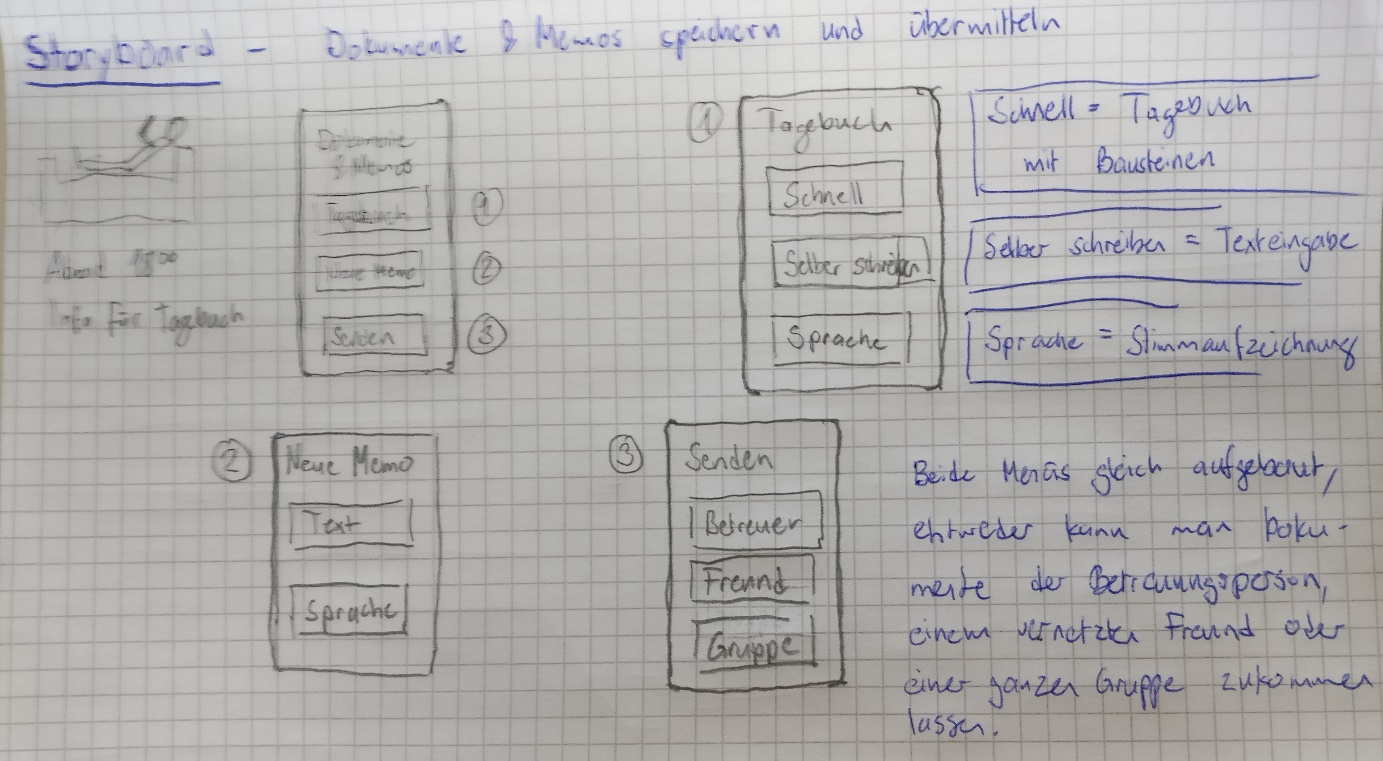 Storyboard - Dokumente & Memos speichern und übermitteln
Dokumente
& Memos
Tagebuch
①
Neue Memo
②
Senden
③
Abend 18:00
Info für Tagebuch
①
Tagebuch
Schnell
Selber schreiben
Sprache
Schnell = Tagebuch
mit Bausteinen
Selber schreiben = Texteingabe
Sprache = Stimmaufzeichnung
②
Neue Memo
Text
Sprache
③
Senden
Betreuer
Freund
Gruppe
Beide Menüs gleich aufgebaut,
entweder kann man Doku-
mente der Betreuungsperson,
einem vernetzten Freund oder
einer ganzen Gruppe zukommen
lassen.